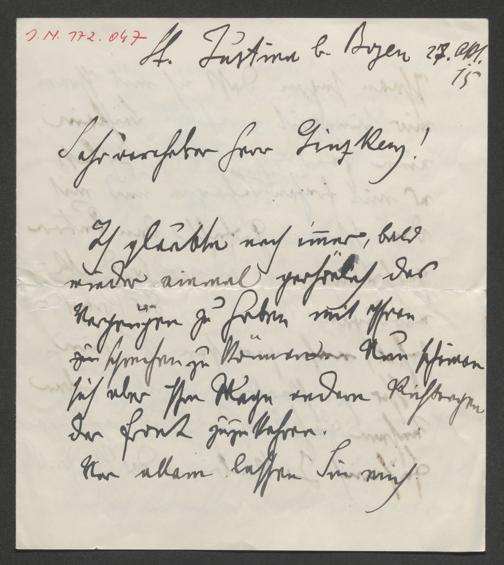 J.N. 172.047
St. Justina b. Bozen 27. Okt. 15
Sehr verehrter Herr
Ich glaubte noch immer, bald
wieder einmal persönlich das
Vergnügen zu haben mit Ihnen
zu sprechen zu können. Nun scheinen
sich aber Ihre Wege andern Richtungen
der Front zuzukehren.
Vor allem lassen Sie mich